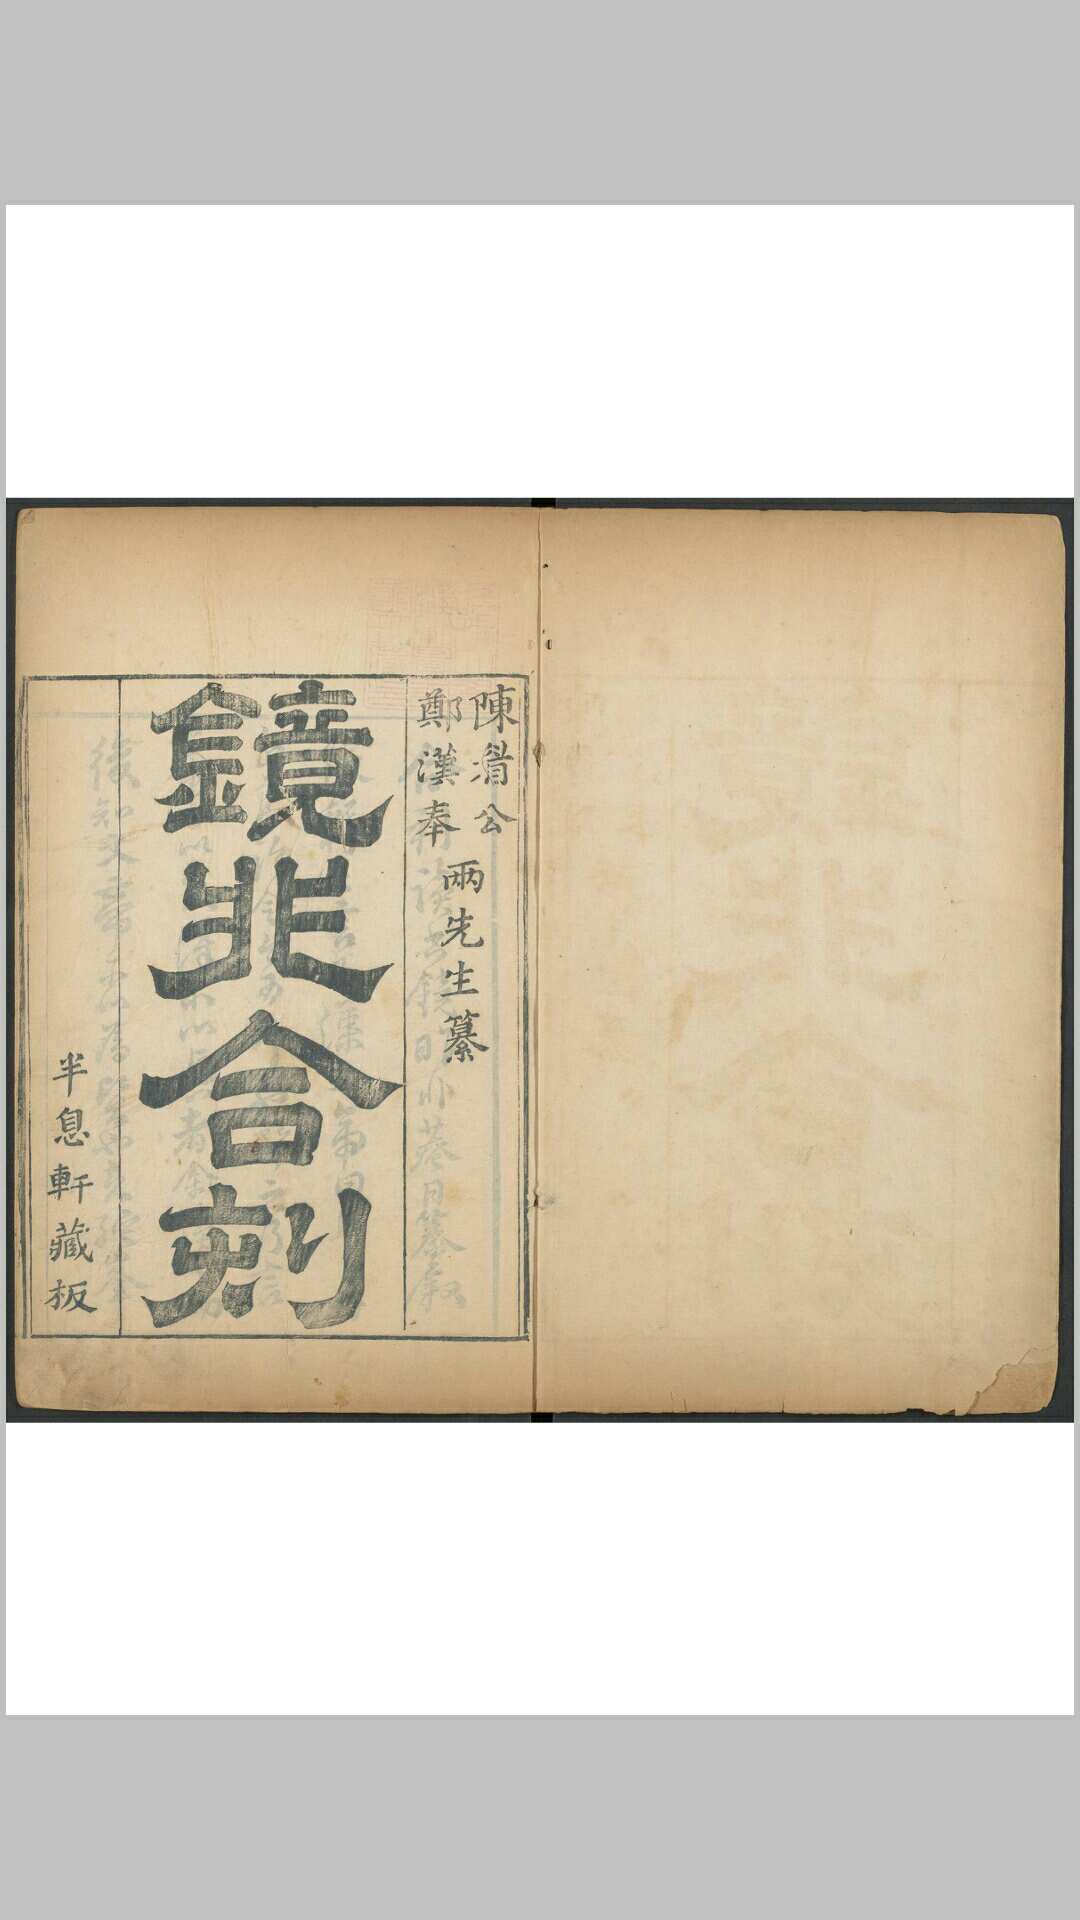 陳眉公
鄭漢奉
兩先生纂
鏡非合刻
半息軒藏板